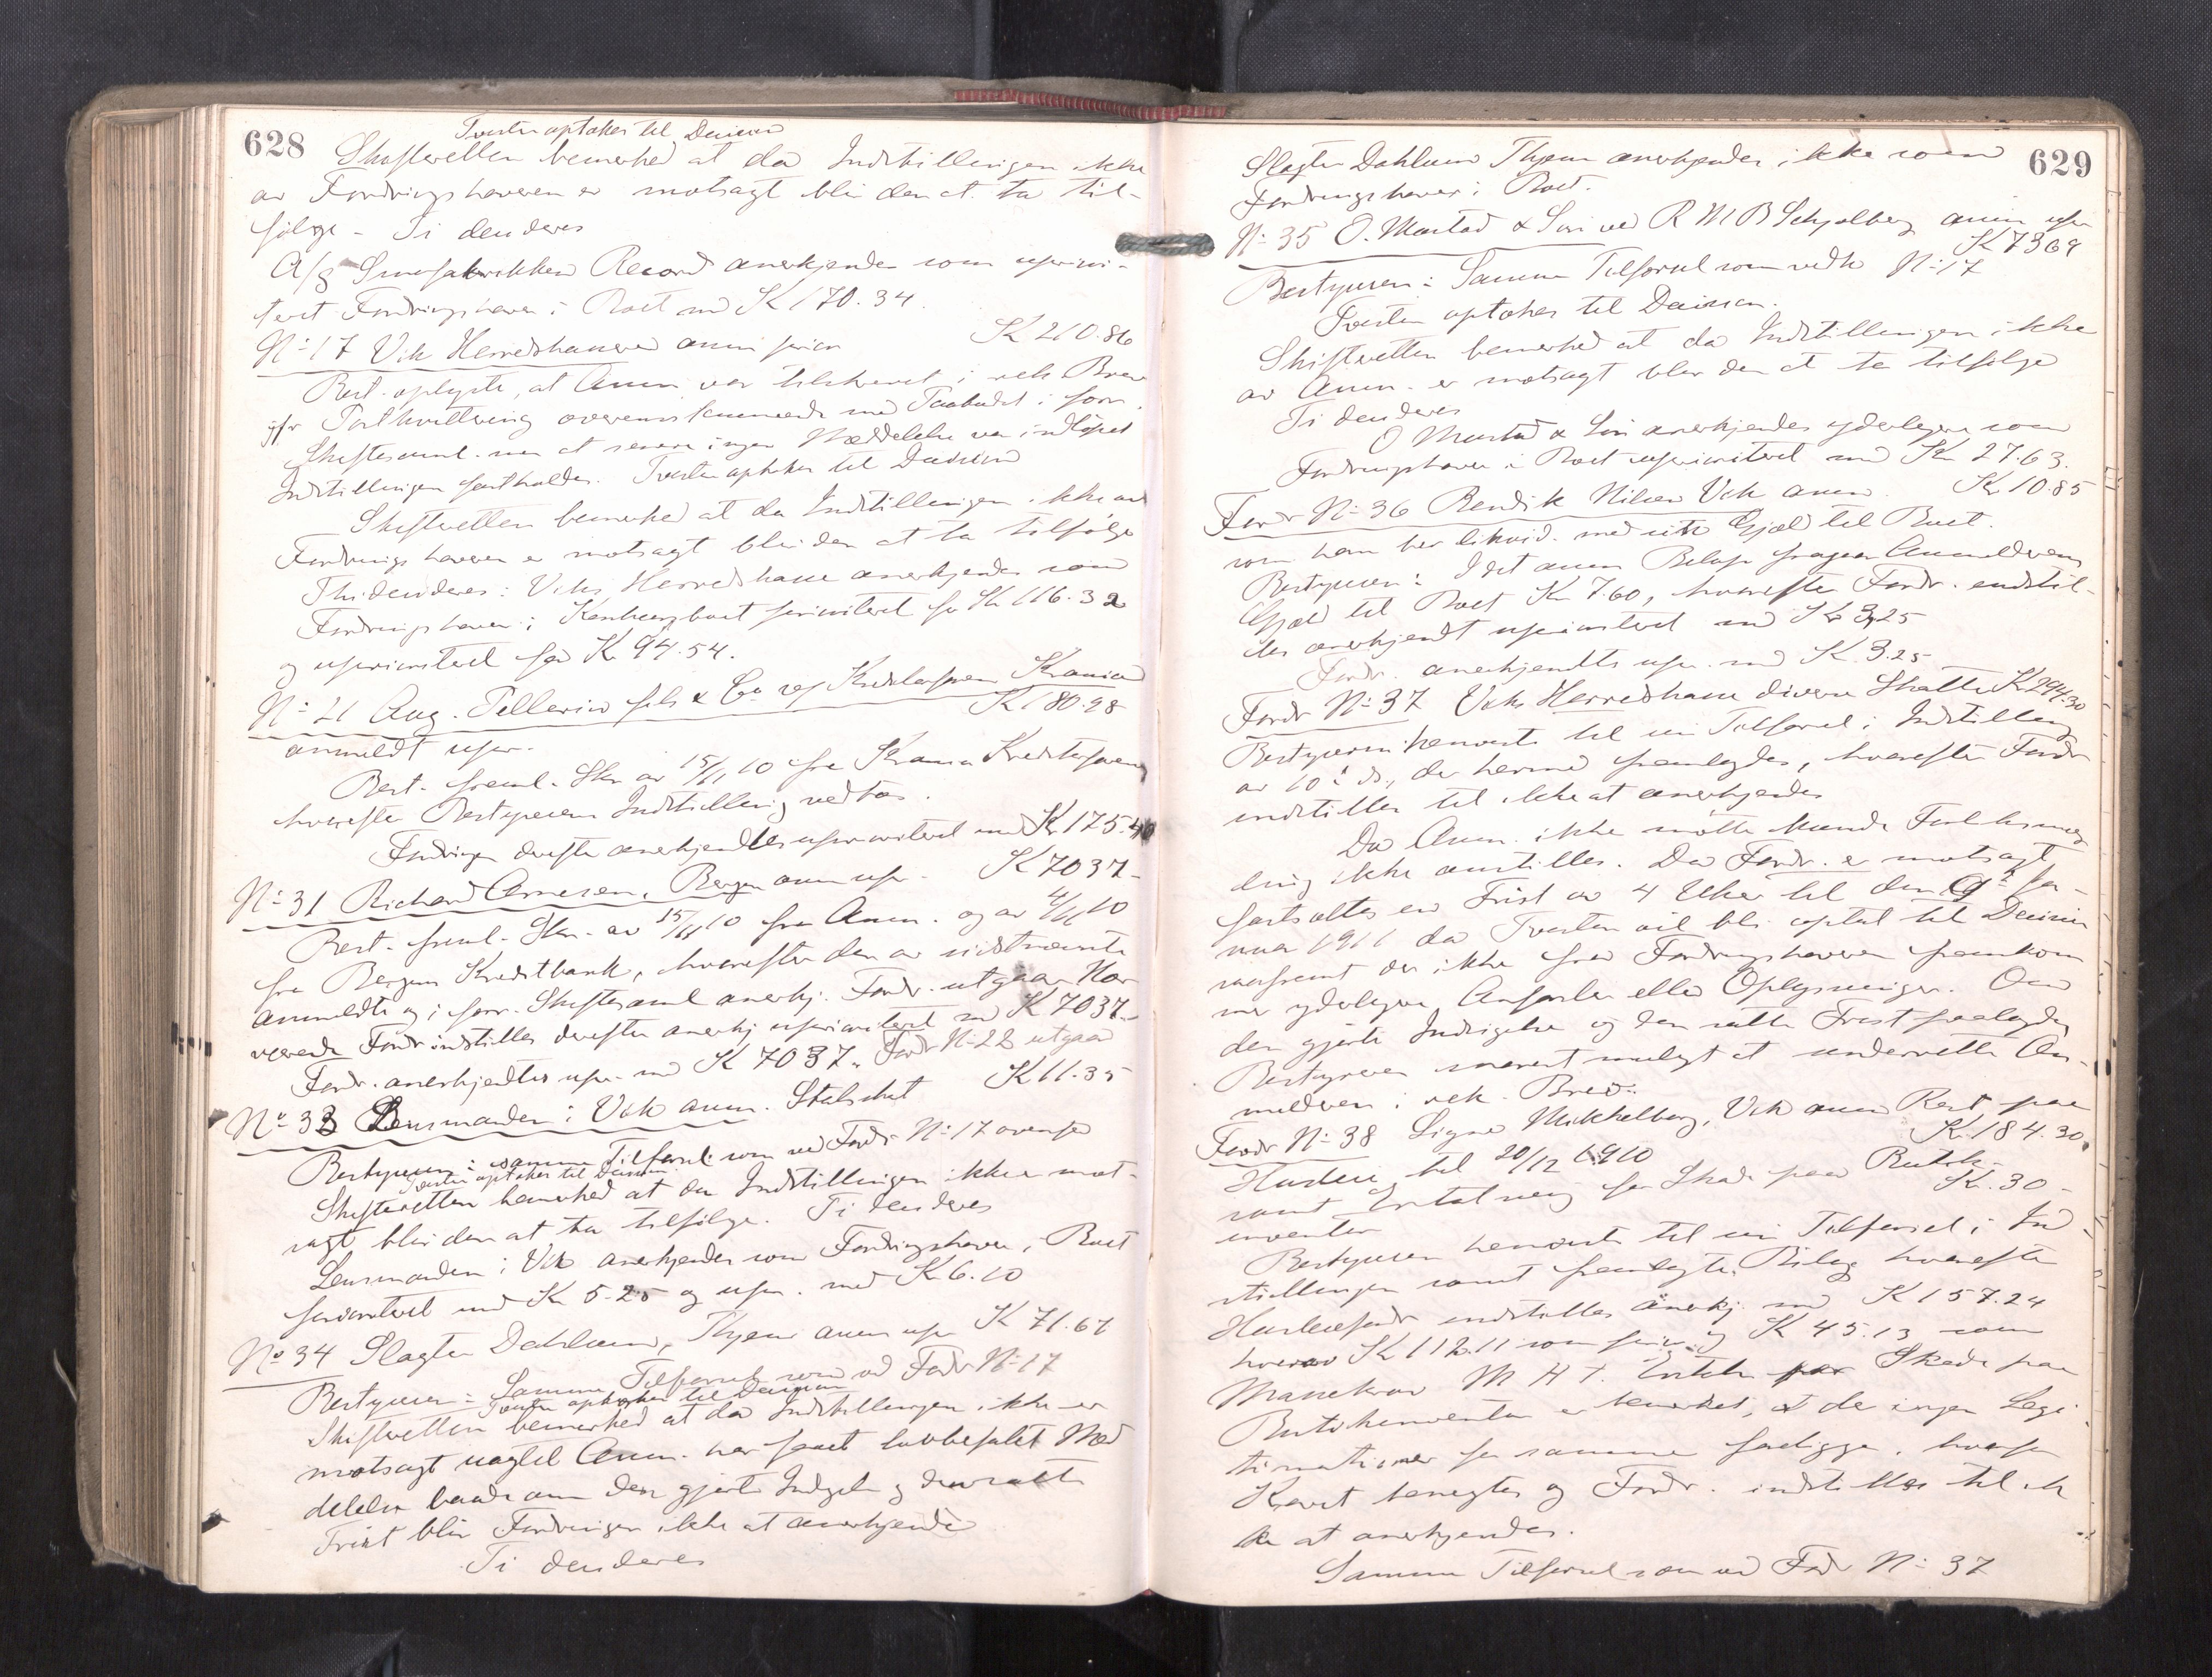 628
Tvisten optokes til Decision
Skifteretten bemerked at da Indstillingen ikke
av Fordringshaveren er motsagt blir den at ta til-
følge - Ti denderes
A/S Smørfabrikken Record anerkjendes som upriori-
tert Fordringshaver i Boet med K 170.34.
No 17 Vik Herredskasse anm prior K 210.86
Best. oplyste, at Anm. var tilskrevet i rek. Brev
jfr Postkvittering overensstemmende med Paabudet i forr.
Skiftesaml. men at senere ingen Meddelelse var indløpet
Indstillingen fastholdes. Tvisten optokes til Decision
Skifteretten bemerked at da Indstillingen ikke av
Fordringshaveren er motsagt blir den at ta tilfølge
Thi denderes: Viks Herredskasse anerkjendes som
Fordringshaver i Konkursboet prioritert for Kr 116.32
og uprioritert for Kr 94.54.
No 21 Aug. Pellerin fils & Co ved Kreditorforen Krania
K 180.98
anmeldt upr.
Best. freml. Skr. av 15/11 10 fra Krania Kreditorforening
hvorefter Bestyrerens Indstilling vedtas.
Fordringen derefter anerkjendtes uprioritert med Kr 175.40
No 31 Richard Arnesen, Bergen anm upr. K 7037-
Best. freml. Skr. av 15/11 10 fra Anm. og av 4/11 10
fra Bergens Kreditbank, hvorefter den av sidstnævnte
anmeldte og i forr. Skiftesaml anerkj. Fordr. utgaar. Nær
værende Fordr indstilles derefter anerkj uprioritert med K 7037.-
Fordr. anerkjendtes upr. med K 7037.- Fordr No 28 utgaar
No 33 Lensmanden i Vik anm. Statsskat K 11.35
Bestyreren: samme Tilførsel som ved Fordr No 17 ovenfor
Tvisten optokes til Decision.
Skifteretten bemerked at da Indstillingen ikke er mot-
sagt blir den at ta tilfølge. Ti denderes
Lensmanden i Vik anerkjendes som Fordringshaver i Boet
prioritert med Kr 5.25 og upr. med Kr 6.10
No 34 Slagter Dahlum, Thjem anm upr K 71.67
Bestyreren: Samme Tilførsel som ved Fordr No 17
Tvisten optokes til Decision
Skifteretten bemerked at da Indstillingen ikke er
motsagt uagtet Anm. har faaet lovbefalet Med
delelse baade om den gjorte Indsigelse og den satte
Frist blir Fordringen ikke at anerkjende
Ti denderes
629
Slagter Dahlum Thjem anerkjendes ikke som
Fordringshaver i Boet.
No 35 O. Mustad & Søn ved R M B Schjølberg anm upr
K 73 69
Bestyreren: Samme Tilførsel som vedk No 17
Tvisten optokes til Decision.
Skifteretten bemerked at da Indstillingen ikke
av Anm. er motsagt blir den at ta tilfølge
Ti denderes
O Mustad & Søn anerkjendes yderligere som
Fordringshaver i Boet uprioritert med Kr 27.63.
Fordr No 36 Bendik Nilsen Vik anm. Kr 10.85
som han har likvid. med sin Gjæld til Boet.
Bestyreren: I det anm Beløp fragaar Anmelderens
Gjæld til Boet Kr 7.60, hvorefter Fordr. indstil-
des anerkjendt uprioritert med Kr 3.25
Fordr. anerkjendtes upr. med K. 3.25
Fordr No 37 Viks Herredskasse diverse Skatter Kr 294.30
Bestyreren henviste til sin Tilførsel i Indstilling
av 10 ds, der hermed fremlægdes, hvorefter Fordr
indstilles til ikke at anerkjendes
Da Anm. ikke møtte kunde Forliksmæg
ling ikke anstilles. Da Fordr. er motsagt
fastsattes en Frist av 4 Uker til den Ja-
nuar 1911 da Tvisten vil bli optat til Decision
saafremt der ikke fra Fordringshaveren fremkom
mer yderligere Anførsler eller Oplysninger. Om
den gjorte Indsigelse og den satte Frist paalagdes
Bestyreren snarest muligt at underrette An-
melderen i rek. Brev.
Fordr No 38 Signe Mikkelborg, Vik anm Rest paa
Husleie til 20/12 1910 Kr. 184.30
samt Erstatning for Skade paa Butik
inventar Kr. 30 -
Bestyreren henviste til sin Tilførsel i Ind
stillingen samt fremlagte Bilag hvorefter
Husleiefordr indstilles anerkj. med K 157.24
hvorav Kr 112.11 som prior. og K 45.13 som
Massekrav M H T. Erstatn for Skade paa
Butikinventar er bemerket, at der ingen Legi
timationer for samme foreligger, hvorfor
Kravet benegtes og Fordr. indstilles til ik
ke at anerkjendes.
Samme Tilførsel som ved Fordr No 37